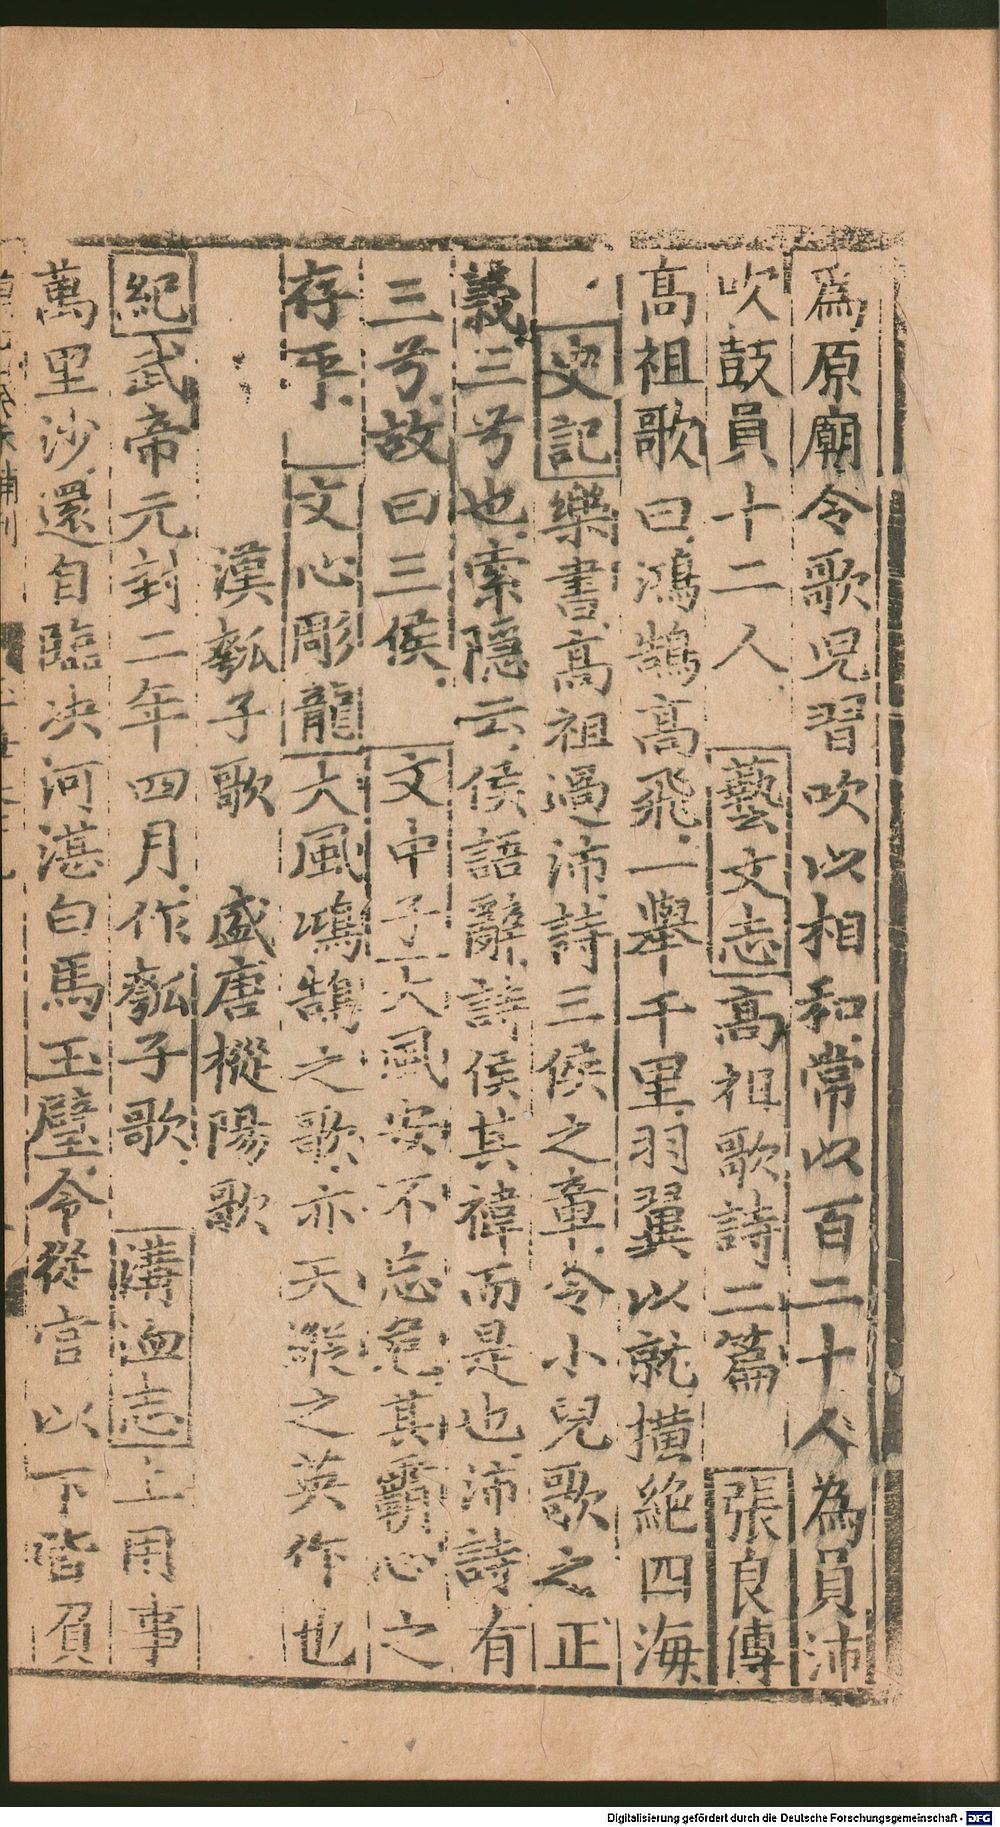 為原廟令歌兒習吹以相和常以百二十人為員沛
吹鼓員十二人 藝文志高祖歌詩二篇 張良傳
高祖歌曰鴻鵠高飛一舉千里羽翼以就撗絶四海
史記樂書高祖過沛詩三侯之章令小兒歌之正
義三兮也索隱云侯語辭詩侯其褘而是也沛詩有
三兮故曰三侯 文中子大風安不忘危其霸心之
存乎 文心彫龍大風鴻鵠之歌亦天縱之英作也
漢瓠子歌 盛唐樅陽歌
紀武帝元封二年四月作瓠子歌 溝洫志上用事
萬里沙還自臨决河湛白馬玉璧令從官以下皆負
Digitalisierung gefördert durch die Deutsche Forschungsgemeinschaft - DFG